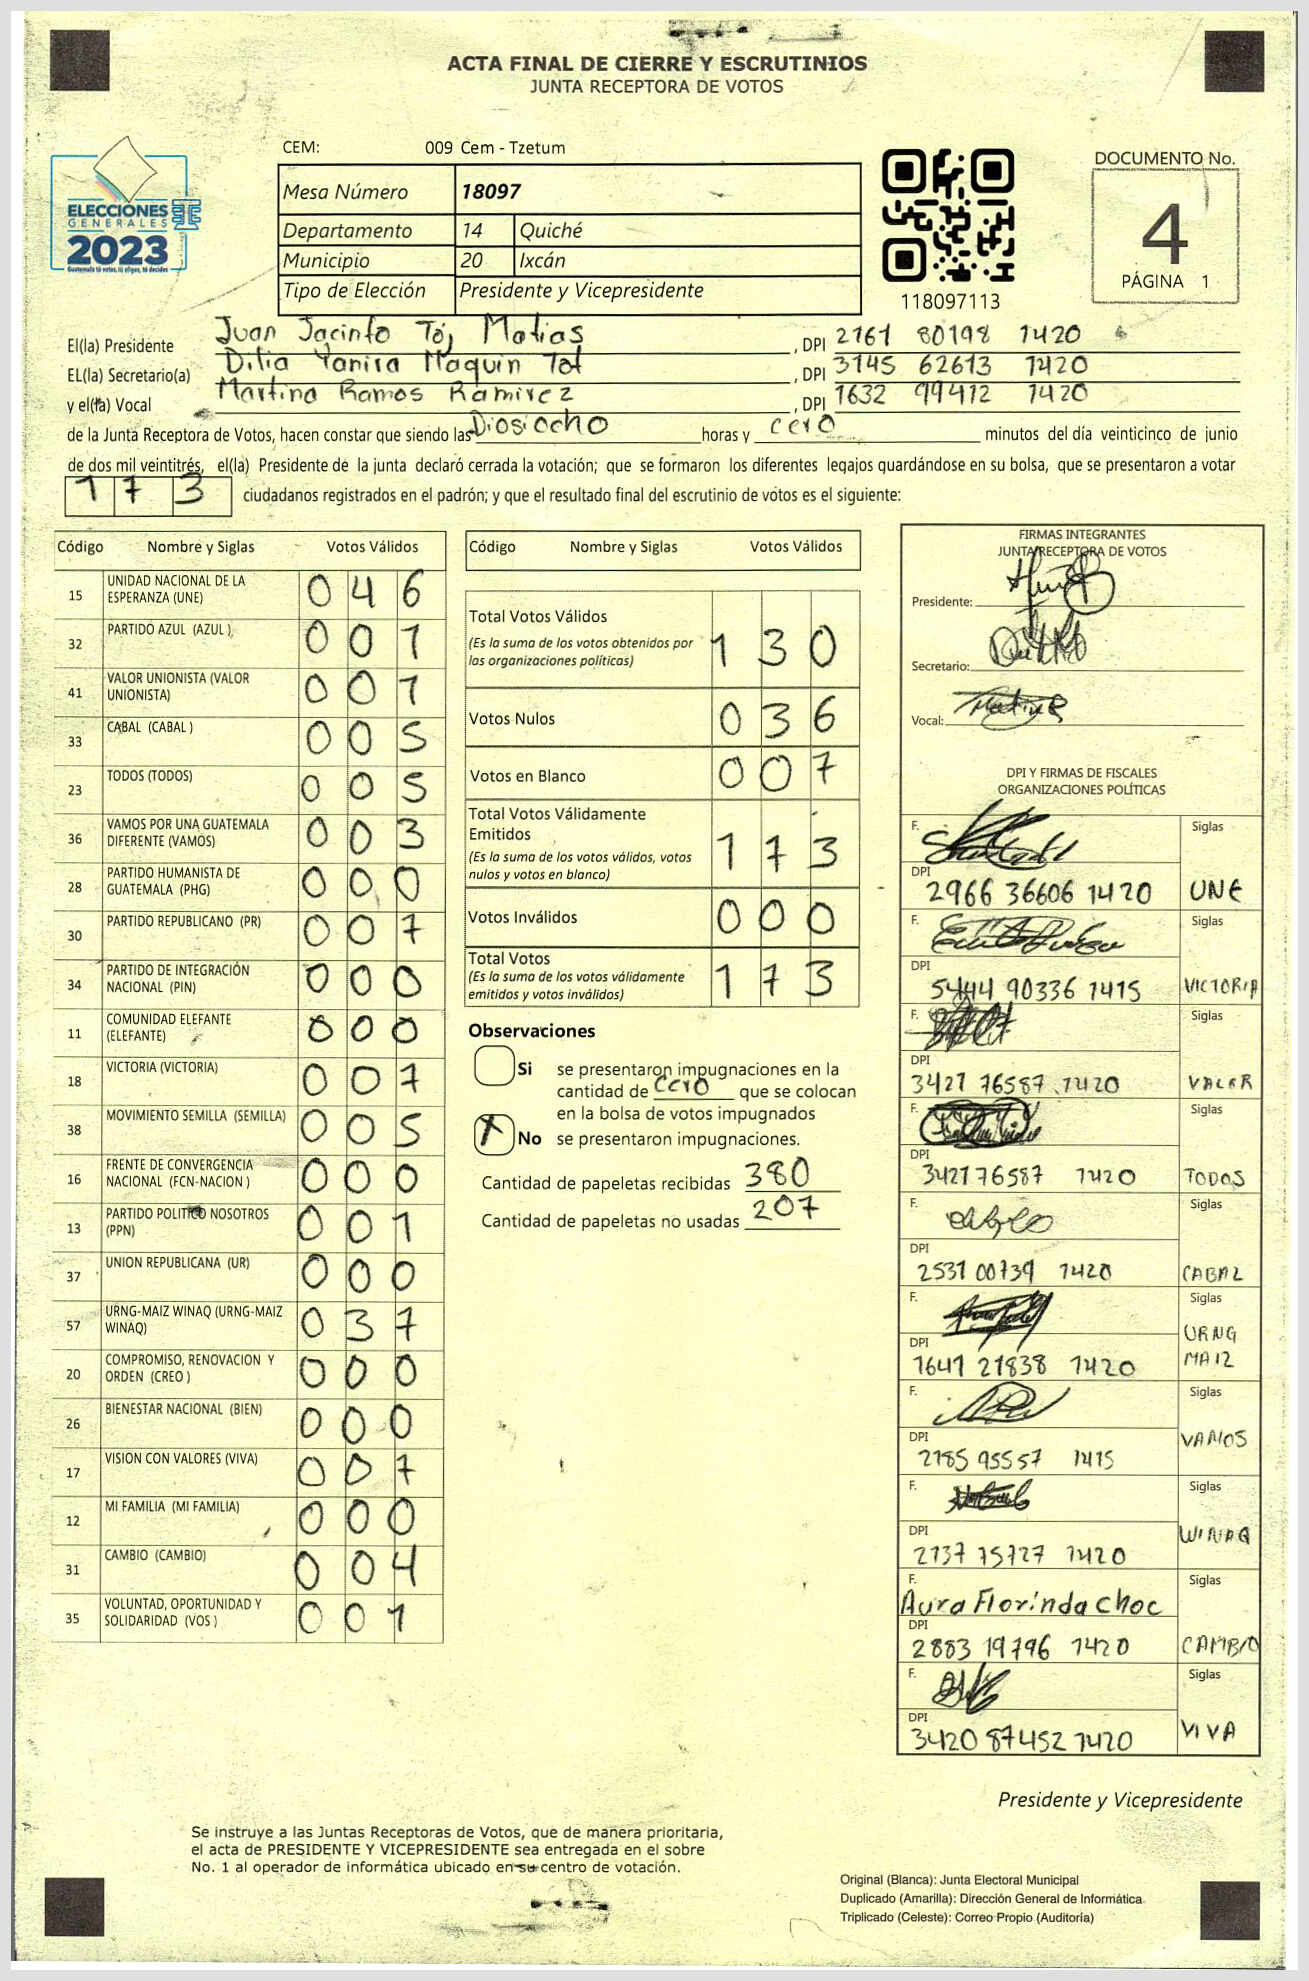 ACTA FINAL DE CIERRE Y ESCRUTINIOS
JUNTA RECEPTORA DE VOTOS
ELECCIONES
GENERALES
2023
Guatemala tú votas, tú eliges, tú decides
CEM: 009 Cem - Tzetum
Mesa Número 18097
Departamento 14 Quiché
Municipio 20 Ixcán
Tipo de Elección Presidente y Vicepresidente
118097113
DOCUMENTO No.
4
PÁGINA 1
El(la) Presidente Juan Jacinto Tó, Matias , DPI 2161 80198 1420
EL(la) Secretario(a) Dilia Yanira Maquin Tot , DPI 3145 62613 1420
y el(la) Vocal Martina Ramos Ramirez , DPI 1632 99412 1420
de la Junta Receptora de Votos, hacen constar que siendo las Diosiocho horas y cero minutos del día veinticinco de junio
de dos mil veintitrés, el(la) Presidente de la junta declaró cerrada la votación; que se formaron los diferentes legajos guardándose en su bolsa, que se presentaron a votar
173 ciudadanos registrados en el padrón; y que el resultado final del escrutinio de votos es el siguiente:
Código Nombre y Siglas Votos Válidos
15 UNIDAD NACIONAL DE LA ESPERANZA (UNE) 046
32 PARTIDO AZUL (AZUL ) 001
41 VALOR UNIONISTA (VALOR UNIONISTA) 001
33 CABAL (CABAL ) 005
23 TODOS (TODOS) 005
36 VAMOS POR UNA GUATEMALA DIFERENTE (VAMOS) 003
28 PARTIDO HUMANISTA DE GUATEMALA (PHG) 000
30 PARTIDO REPUBLICANO (PR) 007
34 PARTIDO DE INTEGRACIÓN NACIONAL (PIN) 000
11 COMUNIDAD ELEFANTE (ELEFANTE) 000
18 VICTORIA (VICTORIA) 007
38 MOVIMIENTO SEMILLA (SEMILLA) 005
16 FRENTE DE CONVERGENCIA NACIONAL (FCN-NACION ) 000
13 PARTIDO POLITICO NOSOTROS (PPN) 001
37 UNION REPUBLICANA (UR) 000
57 URNG-MAIZ WINAQ (URNG-MAIZ WINAQ) 037
20 COMPROMISO, RENOVACION Y ORDEN (CREO ) 000
26 BIENESTAR NACIONAL (BIEN) 000
17 VISION CON VALORES (VIVA) 007
12 MI FAMILIA (MI FAMILIA) 000
31 CAMBIO (CAMBIO) 004
35 VOLUNTAD, OPORTUNIDAD Y SOLIDARIDAD (VOS ) 001
Código Nombre y Siglas Votos Válidos
Total Votos Válidos 130
(Es la suma de los votos obtenidos por
las organizaciones políticas)
Votos Nulos 036
Votos en Blanco 007
Total Votos Válidamente
Emitidos 173
(Es la suma de los votos válidos, votos
nulos y votos en blanco)
Votos Inválidos 000
Total Votos 173
(Es la suma de los votos válidamente
emitidos y votos inválidos)
Observaciones
Si se presentaron impugnaciones en la
cantidad de cero que se colocan
en la bolsa de votos impugnados
X No se presentaron impugnaciones.
Cantidad de papeletas recibidas 380
Cantidad de papeletas no usadas 207
FIRMAS INTEGRANTES
JUNTA RECEPTORA DE VOTOS
Presidente:
Secretario:
Vocal:
DPI Y FIRMAS DE FISCALES
ORGANIZACIONES POLÍTICAS
F. Siglas
DPI
2966 36606 1420 UNE
F. Siglas
DPI
5444 90336 1415 VICTORIA
F. Siglas
DPI
3421 76587 1420 VALOR
F. Siglas
DPI
3421 76587 1420 TODOS
F. Siglas
DPI
2531 00739 1420 CABAL
F. Siglas
DPI
1641 21838 1420 URNG MAIZ
F. Siglas
DPI
2185 95557 1415 VAMOS
F. Siglas
DPI
2137 15727 1420 WINAQ
F. Siglas
Aura Florinda choc
DPI
2883 19796 1420 CAMBIO
F. Siglas
DPI
3420 87452 1420 VIVA
Presidente y Vicepresidente
Se instruye a las Juntas Receptoras de Votos, que de manera prioritaria,
el acta de PRESIDENTE Y VICEPRESIDENTE sea entregada en el sobre
No. 1 al operador de informática ubicado en su centro de votación.
Original (Blanca): Junta Electoral Municipal
Duplicado (Amarilla): Dirección General de Informática
Triplicado (Celeste): Correo Propio (Auditoría)